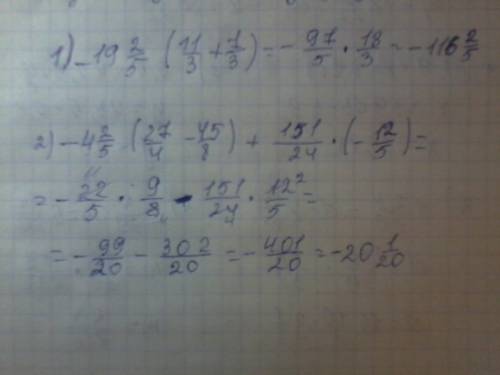 1) -19 2/5 (11/3 + 7/3) = - 97/5 · 18/3 = -116 2/5
2) -4 2/5 · (27/4 - 45/8) + 151/24 · (- 12/5) =
= - 22/5 · 9/8 - 151/24 · 12/5 ² =
= - 99/20 - 302/20 = - 401/20 = -20 1/20